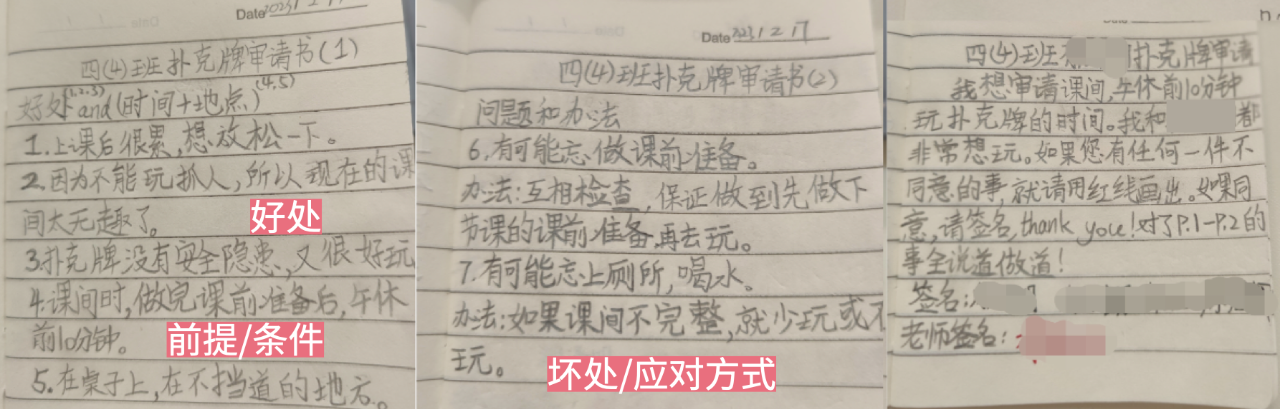 Date 2023 1 2 1
四(4)班扑克牌审请书(1)
好处(1,2,3)and(时间+地点)(4,5)
1.上课后很累,想放松一下。
2.因为不能玩抓人,所以现在的课
间太无趣了。
好处
3.扑克牌没有安全隐患,又很好玩
4.课间时,做完课前准备后,午休
前10分钟。
前提/条件
5.在桌子上,在不挡道的地方。
Date 2023 1 2 17
四(4)班扑克牌审请书(2)
问题和办法
6.有可能忘做课前准备。
办法:互相检查,保证做到先做下
节课的课前准备,再去玩。
7.有可能忘上厕所,喝水。
办法:如果课间不完整,就少玩或不
玩。
坏处/应对方式
四(4)班 扑克牌审请
我想审请课间,午休前10分钟
玩扑克牌的时间。我和 都
非常想玩。如果您有任何一件不
同意的事,就请用红线画出。如果同
意,请签名,thank you!对了P.1-P.2的
事全说道做道!
签名:
老师签名: